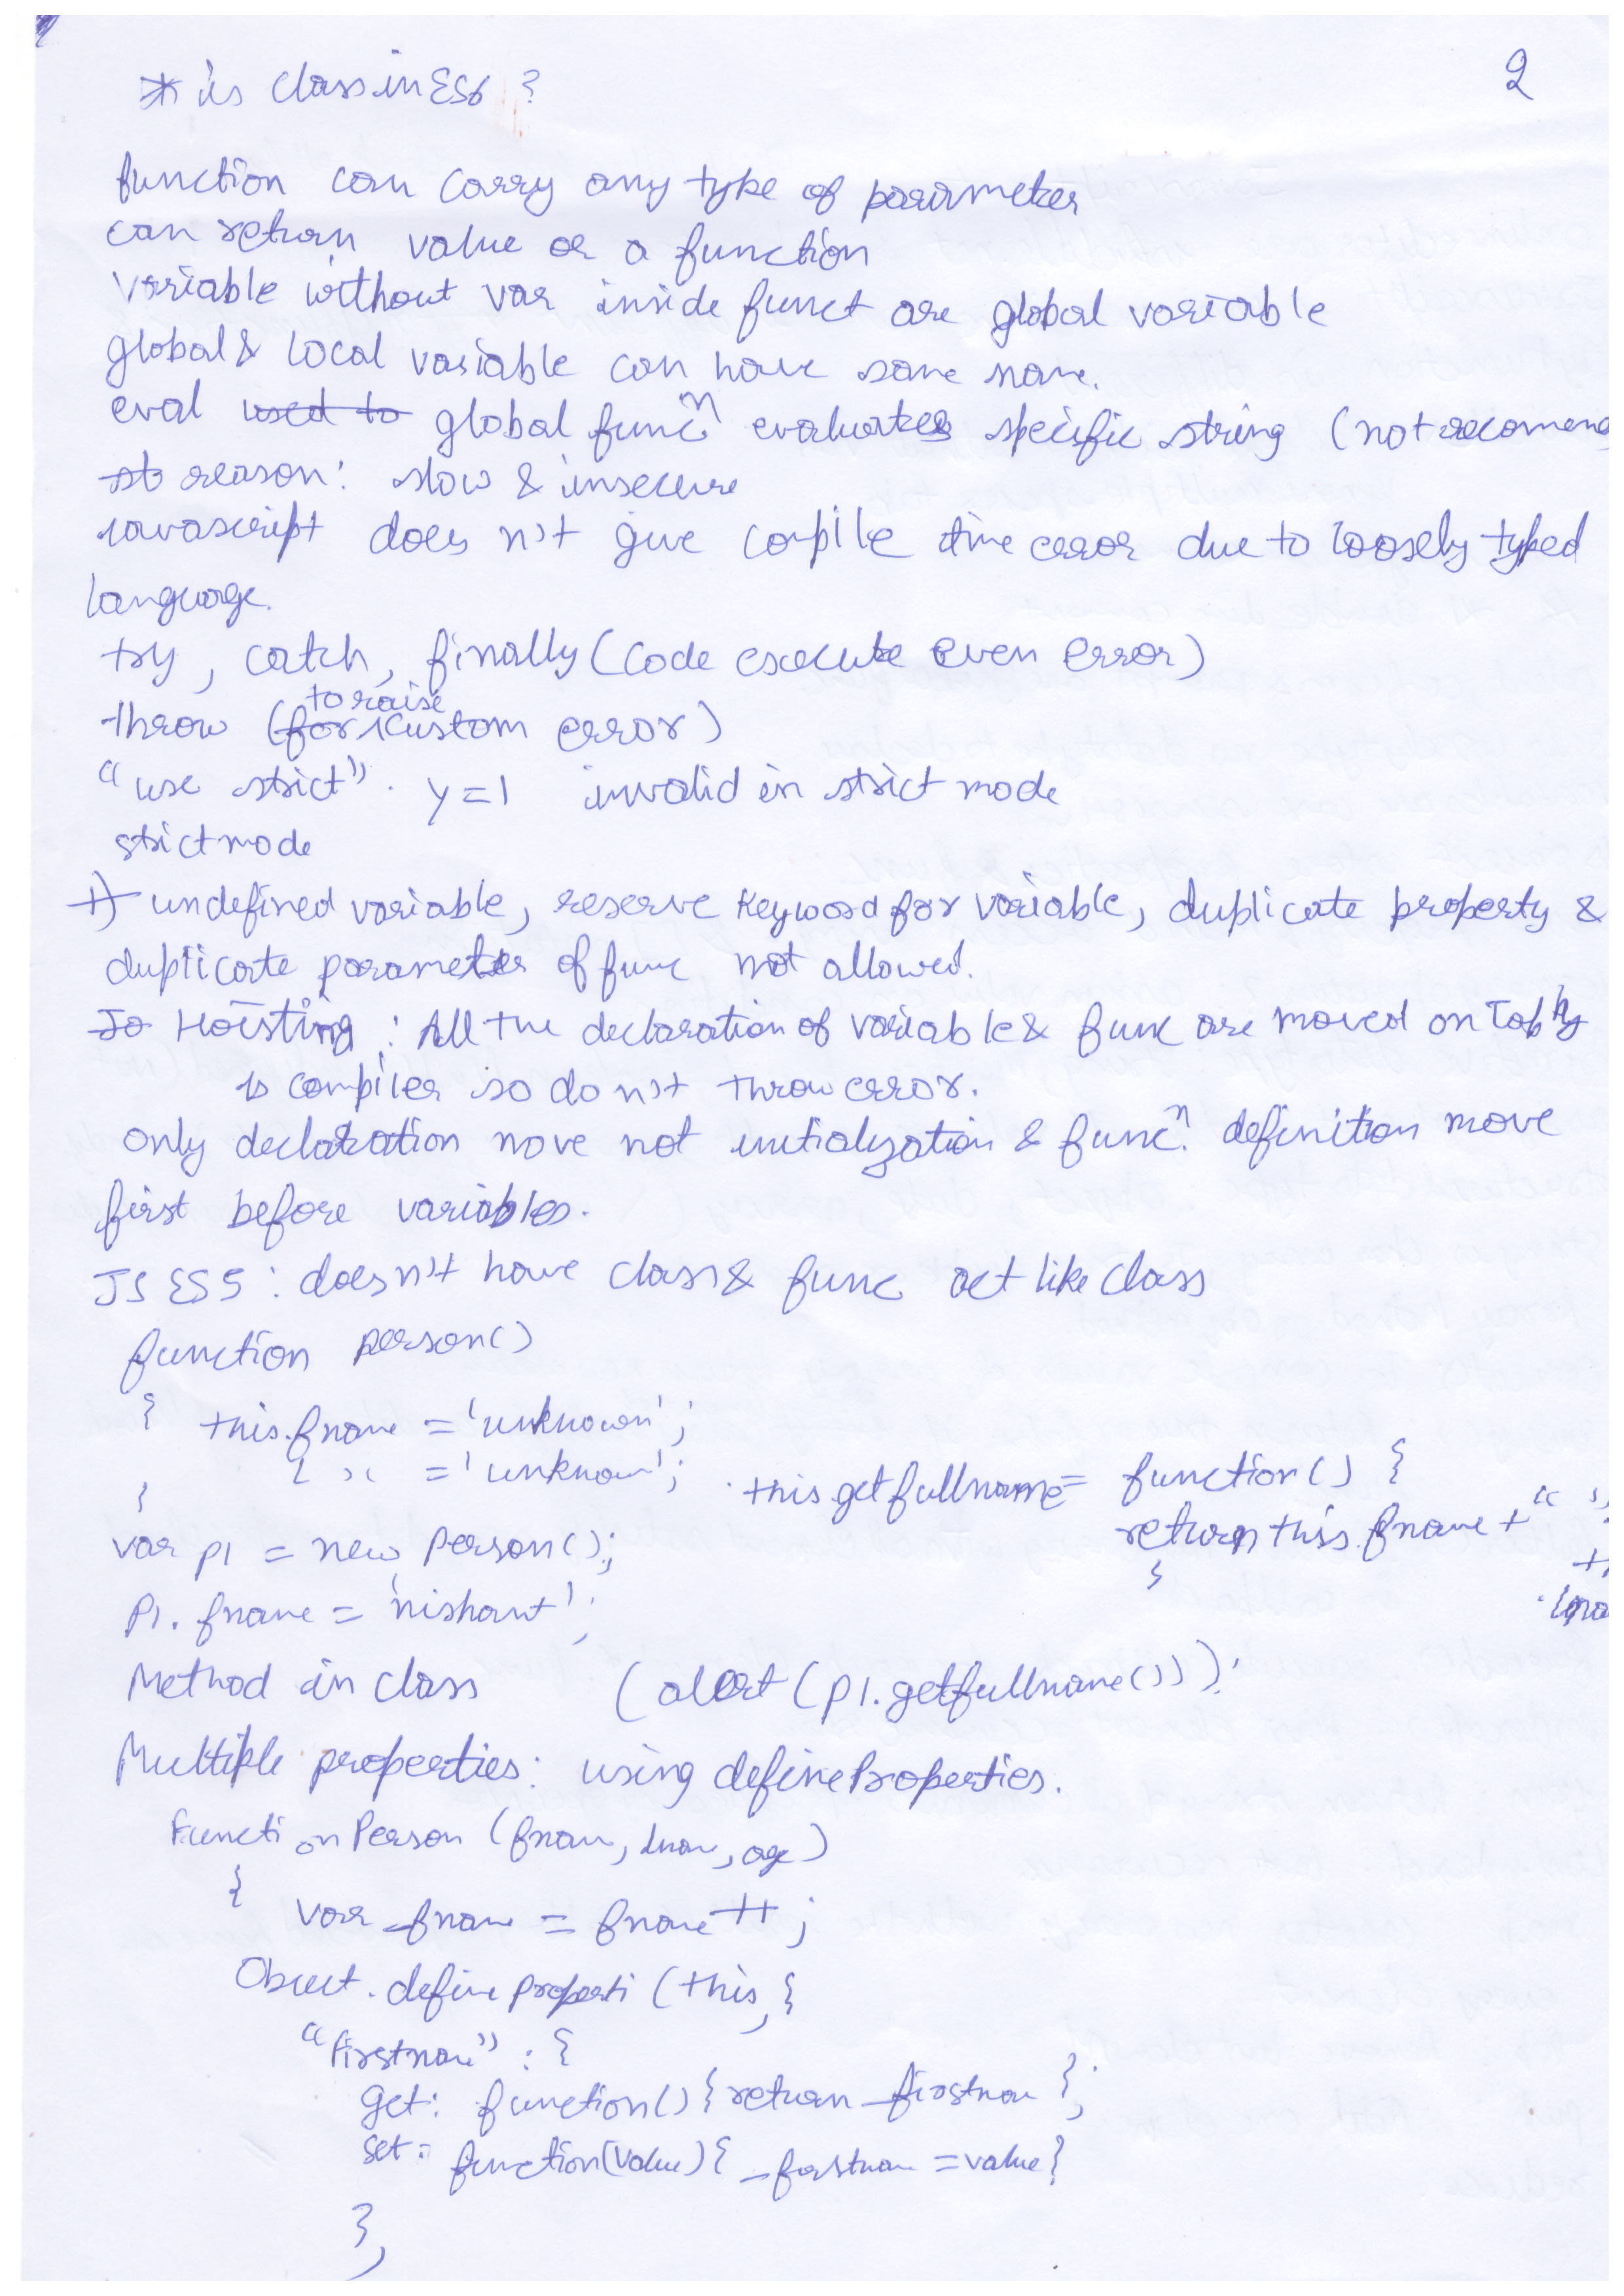 * is class in ES6 ?
2
function can carry any type of parameter
can return value or a function
variable without var inside funct are global variable
global & local variable can have same name.
eval used to global funcⁿ evaluates specific string (not recomend
reason: slow & insecure
Javascript does n't give compile time error due to loosely typed
language.
try, catch, finally (code execute even error)
to raise
throw (for custom error)
"use strict". y=1 invalid in strict mode
strict mode
1) undefined variable, reserve keyword for variable, duplicate property &
duplicate parameter of func not allowed.
Hoisting : All the declaration of variable & func are moved on Top by
Js compiler so do n't throw error.
only declaration move not initialization & funcⁿ. definition move
first before variables.
JS ES5 : does n't have class & func act like class
function person()
{ this.fname = 'unknown';
= 'unknown';
}
this.getfullname = function() {
return this.fname + " "
}
var p1 = new person();
p1.fname = 'nishant';
Method in class (alert(p1.getfullname()));
Multiple properties: using defineProperties.
Function Person (fname, lname, age)
{
var _fname = fname ++ ;
Object.defineProperti (this, {
"firstname" : {
get: function() { return _firstname };
set: function(value) { _firstname = value}
},